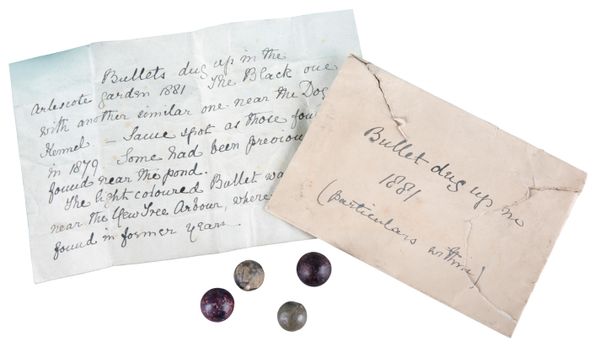 Bullets dug up in the
Arlescote garden 1881 The Black one
with another similar one near the Dog
Kennel – Same spot as those fou
in 1879. Some had been previou
found near the pond.
The light coloured Bullet wa
near the Yew Tree Arbour, where
found in former years.
Bullet dug up in
1881
(particulars within)